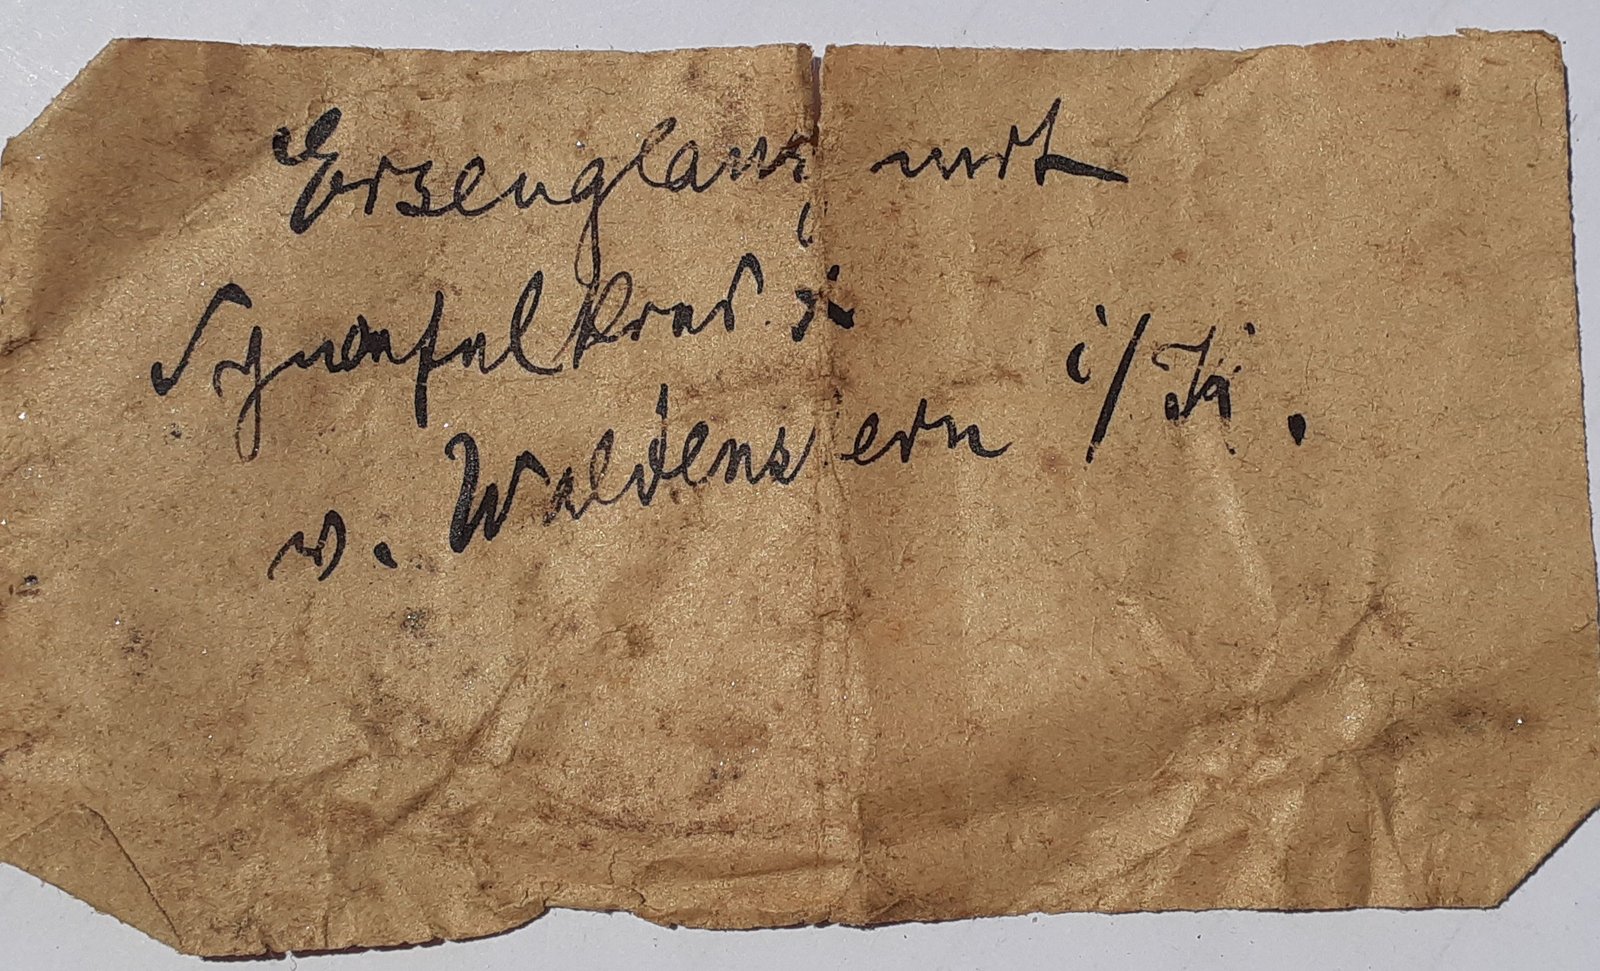 Eisenglanz mit
Schwefelkies
v. Waldenstein i/Kä.